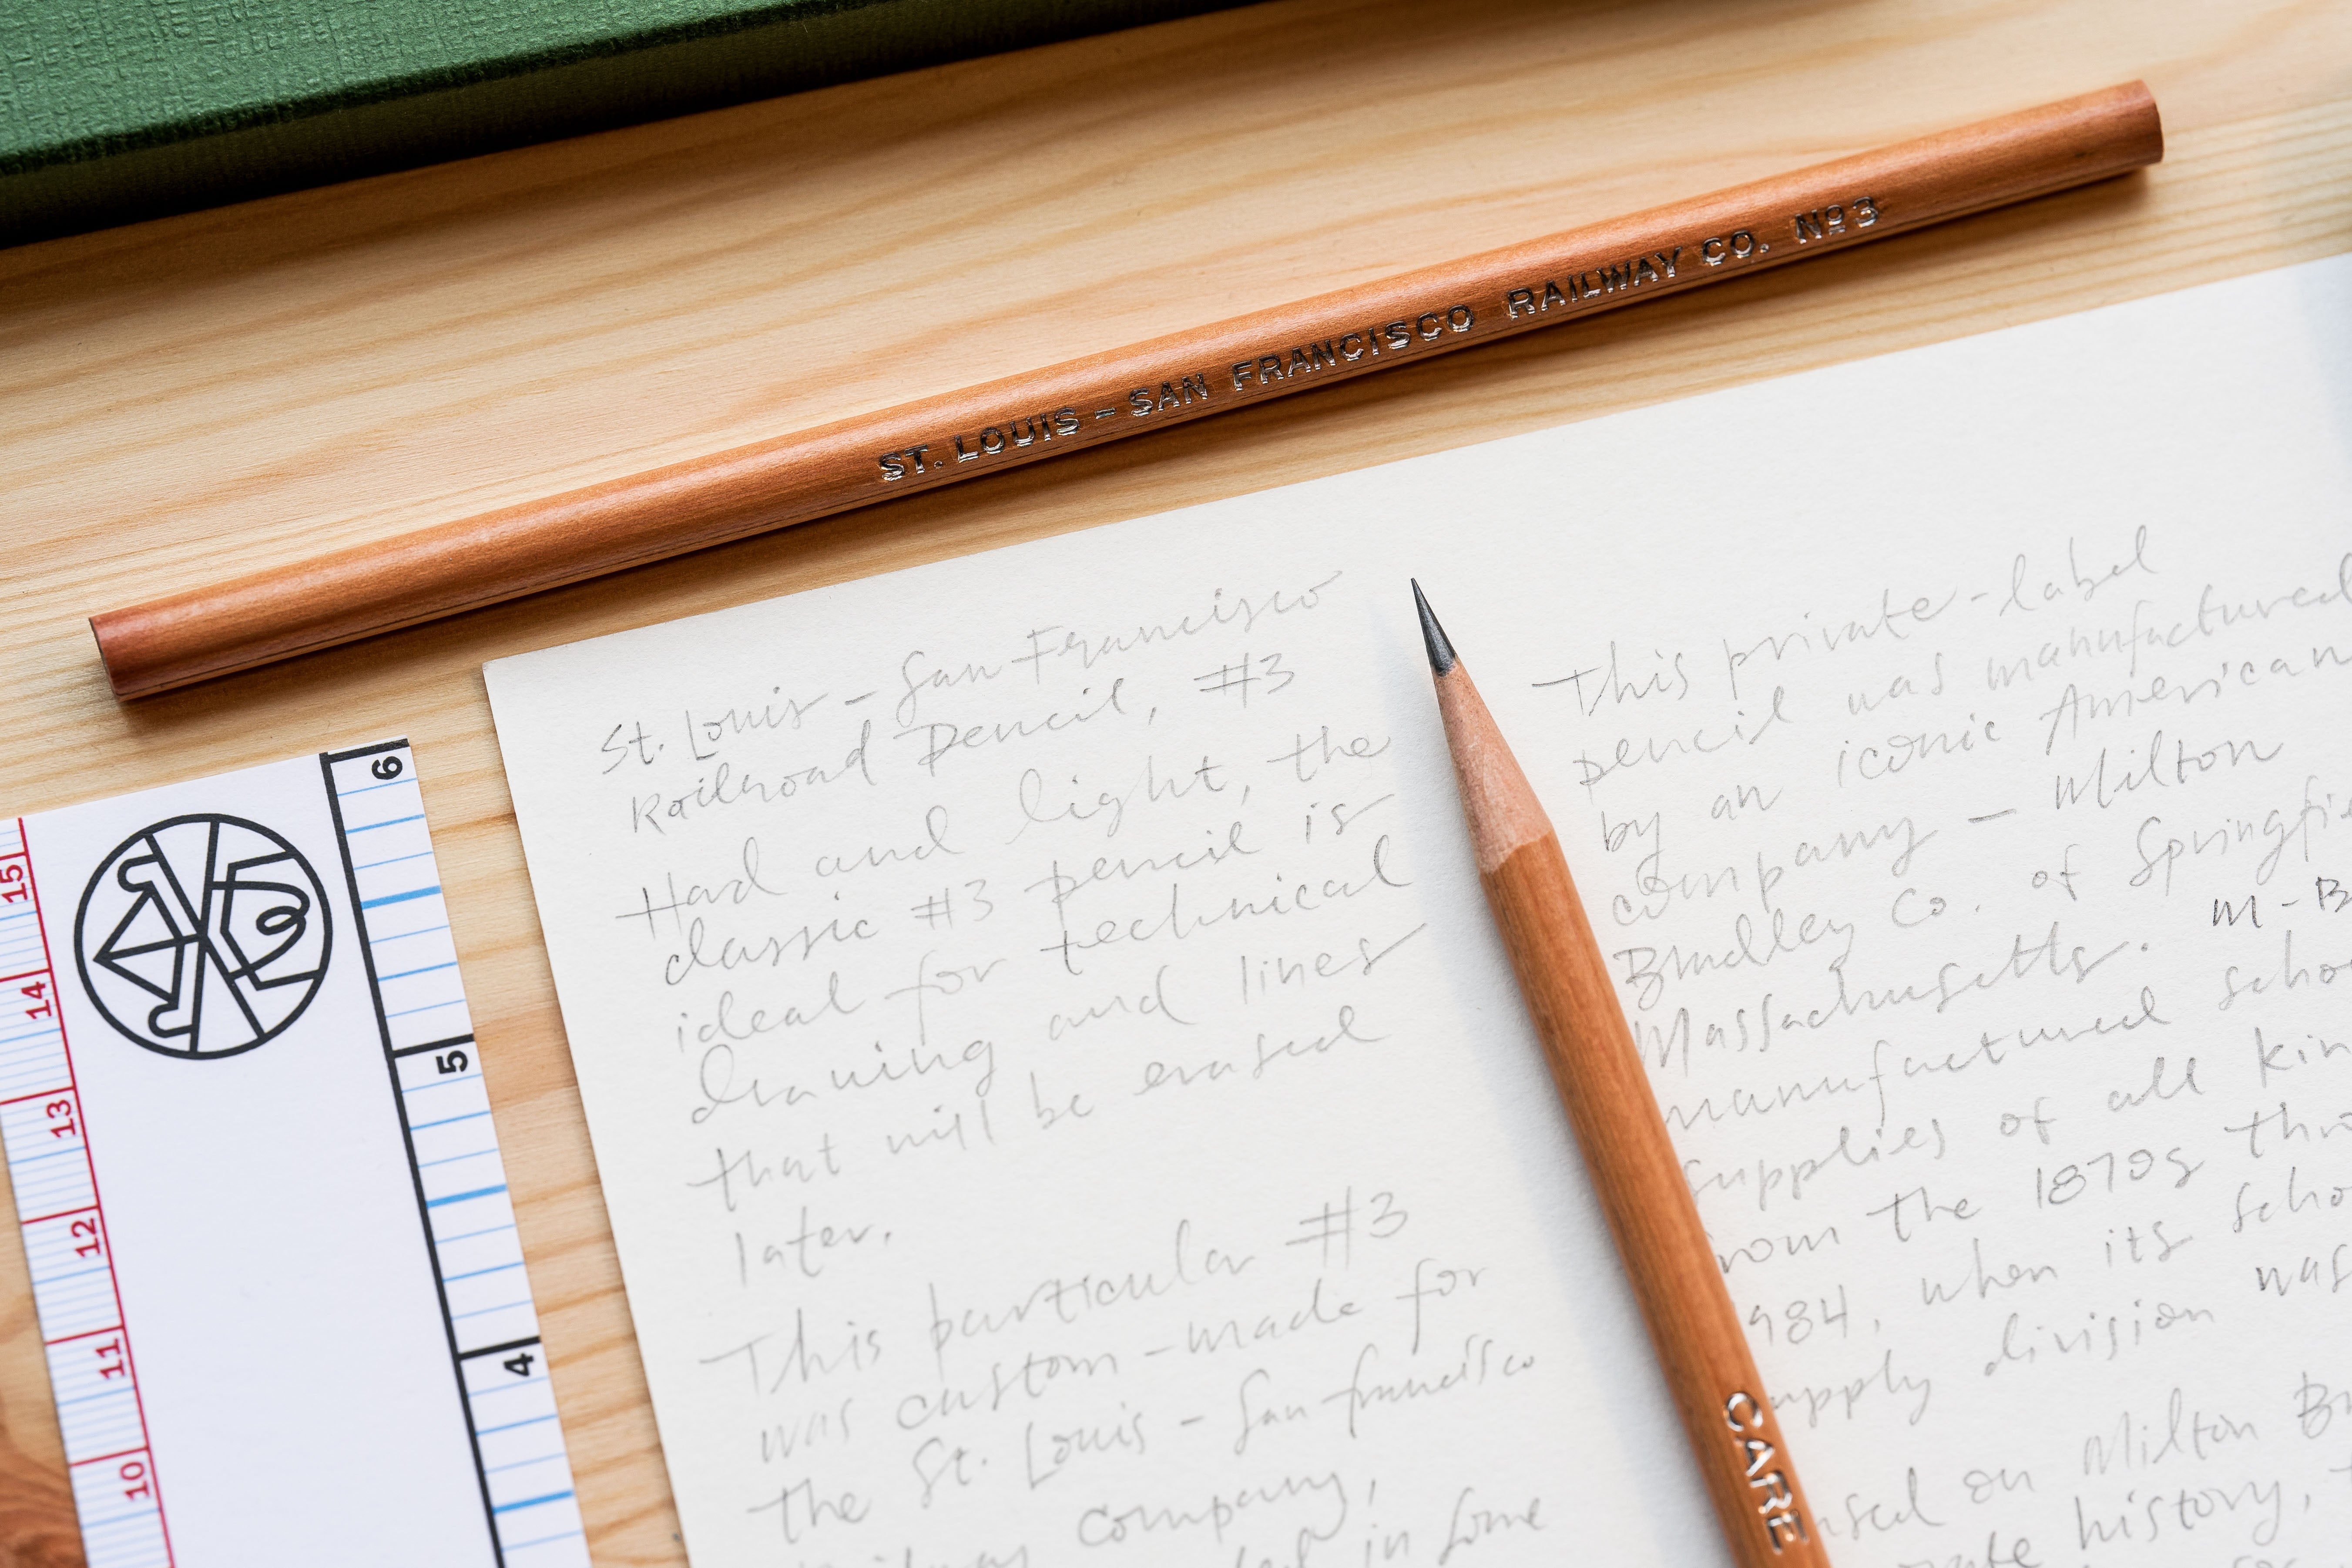 ST. LOUIS – SAN FRANCISCO RAILWAY CO. Nº 3
St. Louis – San Francisco
Railroad Pencil, #3
Hard and light, the
classic #3 pencil is
ideal for technical
drawing and lines
that will be erased
later.
This particular #3
was custom-made for
the St. Louis – San Francisco
Company,
in some
This private-label
pencil was manufactured
by an iconic American
company – Milton
Bradley Co. of
Massachusetts. M-B
manufactured
supplies of all
the 1870s
when its
division was
on Milton
history,
CARE
15
14
13
12
11
10
6
5
4